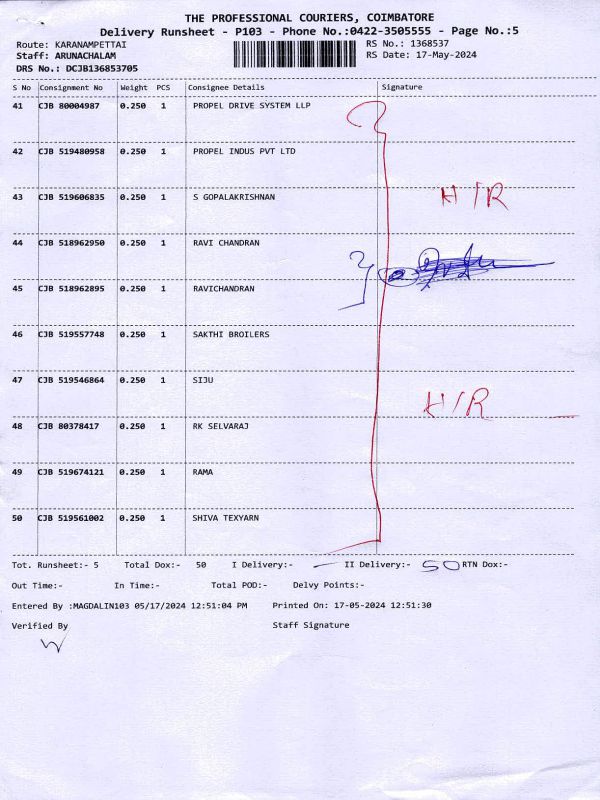 THE PROFESSIONAL COURIERS, COIMBATORE
Delivery Runsheet - P103 - Phone No.:0422-3505555 - Page No.:5
Route: KARANAMPETTAI RS No.: 1368537
Staff: ARUNACHALAM RS Date: 17-May-2024
DRS No.: DCJB136853705
S No Consignment No Weight PCS Consignee Details Signature
41 CJB 80004987 0.250 1 PROPEL DRIVE SYSTEM LLP
42 CJB 519480958 0.250 1 PROPEL INDUS PVT LTD
43 CJB 519606835 0.250 1 S GOPALAKRISHNAN H/R
44 CJB 518962950 0.250 1 RAVI CHANDRAN
45 CJB 518962895 0.250 1 RAVICHANDRAN
46 CJB 519557748 0.250 1 SAKTHI BROILERS
47 CJB 519546864 0.250 1 SIJU H/R
48 CJB 80378417 0.250 1 RK SELVARAJ
49 CJB 519674121 0.250 1 RAMA
50 CJB 519561002 0.250 1 SHIVA TEXYARN
Tot. Runsheet:- 5 Total Dox:- 50 I Delivery:- — II Delivery:- 50 RTN Dox:-
Out Time:- In Time:- Total POD:- Delvy Points:-
Entered By :MAGDALIN103 05/17/2024 12:51:04 PM Printed On: 17-05-2024 12:51:30
Verified By Staff Signature